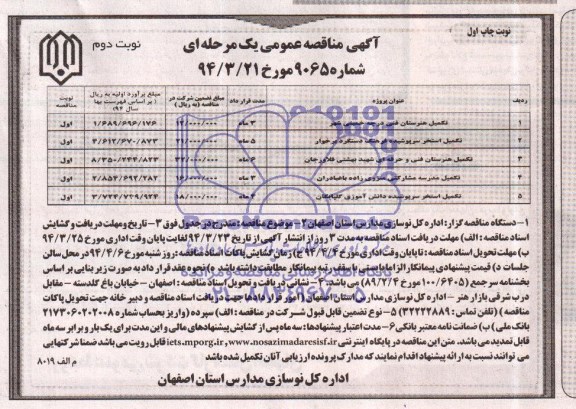 نوبت چاپ اول
آگهی مناقصه عمومی یک مرحله ای
نوبت دوم
شماره ۹۰۶۵ مورخ ۹۴/۳/۲۱
ردیف عنوان پروژه مدت قرار داد مبلغ تضمین شرکت در مناقصه (به ریال) مبلغ برآورد اولیه به ریال (بر اساس فهرست بها سال ۹۴) نوبت مناقصه
۱ تکمیل هنرستان فنی ۳ ماه اول
۲ تکمیل استخر سرپوشیده فرهنگ دستگرد برخوار ۵ ماه ۲۱/۰۰۰/۰۰۰ ۳/۶۱۲/۶۷۰/۸۷۳ اول
۳ تکمیل هنرستان فنی و حرفه ای شهید بهشتی فلاورجان ۶ ماه ۳۲/۰۰۰/۰۰۰ ۸/۳۵۰/۲۴۴/۸۲۳ اول
۴ تکمیل مدرسه مشارکتی باغبادران ۴ ماه ۱۶/۰۰۰/۰۰۰ ۲/۸۵۴/۶۹۲/۲۸۲ اول
۵ تکمیل استخر سرپوشیده دانش آموزی گلپایگان ۴ ماه ۱۸/۰۰۰/۰۰۰ اول
۱- دستگاه مناقصه گزار: اداره کل نوسازی مدارس استان اصفهان ۲- موضوع مناقصه: مندرج در جدول فوق ۳- تاریخ و مهلت دریافت و گشایش
اسناد مناقصه: الف) مهلت دریافت اسناد مناقصه به مدت ۳ روز از انتشار آگهی از تاریخ ۹۴/۳/۲۳ لغایت پایان وقت اداری مورخ ۹۴/۳/۲۵
ب) مهلت تحویل اسناد مناقصه: تا پایان وقت اداری مورخ ۹۴/۴/۴ ج) زمان گشایش پاکات اسناد مناقصه: روز شنبه مورخ ۹۴/۴/۶ در محل سالن
جلسات د) قیمت پیشنهادی پیمانکار الزاما بایستی با سقف رتبه پیمانکار مطابقت داشته باشد ه) نحوه عقد قرار داد به صورت زیر بنایی بر اساس
بخشنامه سر جمع (۱۰۰/۶۴۰۵ مورخ ۸۹/۲/۴) می باشد. ۴- نشانی دریافت و تحویل اسناد مناقصه: اصفهان - خیابان باغ گلدسته - مقابل
درب شرقی بازار هنر - اداره کل نوسازی مدارس استان اصفهان (امور قرار دادها جهت دریافت اسناد مناقصه و دبیر خانه جهت تحویل پاکات
مناقصه) (تلفن تماس: ۳۲۲۲۲۸۸۹) ۵- نوع تضمین قابل قبول شرکت در مناقصه: الف) سپرده (واریز بحساب شماره ۲۱۷۳۰۶۰۲۰۲۰۰۸
بانک ملی) ب) ضمانت نامه معتبر بانکی ۶- مدت اعتبار پیشنهادها: سه ماه پس از گشایش پیشنهادهای مالی و این مدت برای یک بار و برابر سه ماه
قابل تمدید می باشد. متن این مناقصه در پایگاه اینترنتی iets.mporg.ir, www.nosazimadaresisf.ir قابل رویت می باشد ضمنا شرکتهایی
می توانند نسبت به ارائه پیشنهاد اقدام نمایند که مدارک پرونده ارزیابی آنان تکمیل شده باشد
م الف ۸۰۱۹
اداره کل نوسازی مدارس استان اصفهان